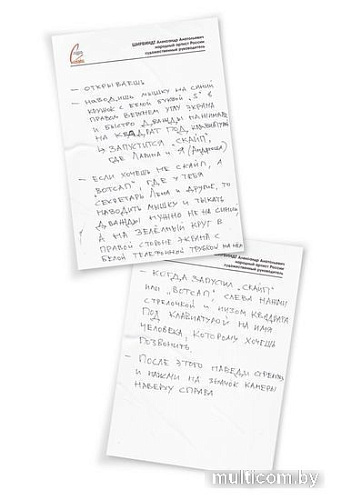 ШИРВИНДТ Александр Анатольевич
народный артист России
художественный руководитель
— ОТКРЫВАЕШЬ
— НАВОДИШЬ МЫШКУ НА СИНИЙ
КРУЖОК С БЕЛОЙ БУКВОЙ „S" В
ПРАВОМ ВЕРХНЕМ УГЛУ ЭКРАНА
И БЫСТРО ДВАЖДЫ НАЖИМАЕШЬ
НА КВАДРАТ ПОД КЛАВИАТУРОЙ
ЗАПУСТИТСЯ „СКАЙП",
ГДЕ И Я
— ЕСЛИ ХОЧЕШЬ НЕ СКАЙП, А
„ВОТСАП", ГДЕ У ТЕБЯ
СЕКРЕТАРЬ ЛЕНА И ДРУГИЕ, ТО
НАВОДИТЬ МЫШКУ И ТЫКАТЬ
ДВАЖДЫ НУЖНО НЕ НА СИНИЙ,
А НА ЗЕЛЁНЫЙ КРУГ В
ПРАВОЙ СТОРОНЕ ЭКРАНА С
БЕЛОЙ ТЕЛЕФОННОЙ ТРУБКОЙ НА НЁМ
ШИРВИНДТ Александр Анатольевич
народный артист России
художественный руководитель
— КОГДА ЗАПУСТИЛ „СКАЙП"
ИЛИ „ВОТСАП", СЛЕВА НАЖМИ
СТРЕЛОЧКОЙ И НИЗОМ КВАДРАТА
ПОД КЛАВИАТУРОЙ НА ИМЯ
ЧЕЛОВЕКА, КОТОРОМУ ХОЧЕШЬ
ПОЗВОНИТЬ.
— ПОСЛЕ ЭТОГО НАВЕДИ СТРЕЛКУ
И НАЖМИ НА ЗНАЧОК КАМЕРЫ
НАВЕРХУ СПРАВА
multicom.by